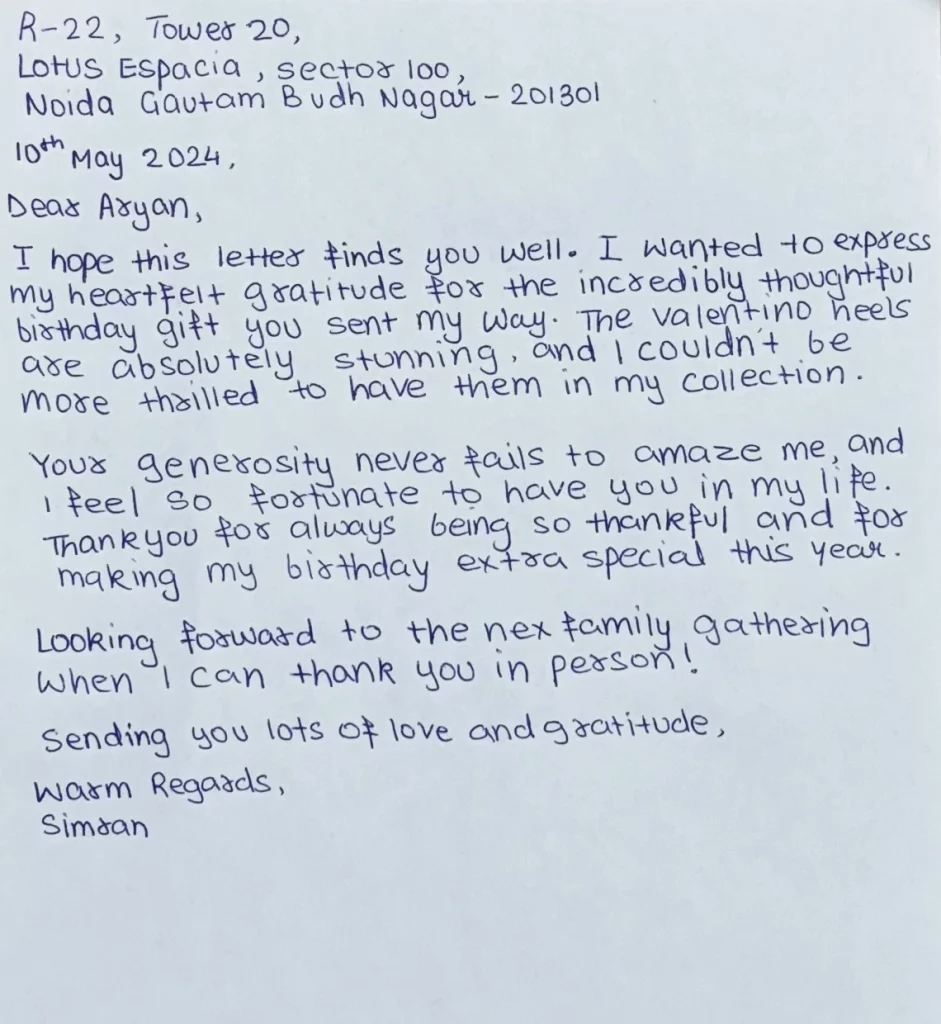 R-22, Tower 20,
Lotus Espacia, sector 100,
Noida Gautam Budh Nagar - 201301
10th May 2024,
Dear Aryan,
I hope this letter finds you well. I wanted to express
my heartfelt gratitude for the incredibly thoughtful
birthday gift you sent my way. The valentino heels
are absolutely stunning, and I couldn't be
more thrilled to have them in my collection.
Your generosity never fails to amaze me, and
I feel so fortunate to have you in my life.
Thankyou for always being so thankful and for
making my birthday extra special this year.
Looking forward to the nex family gathering
when I can thank you in person!
Sending you lots of love and gratitude,
Warm Regards,
Simran